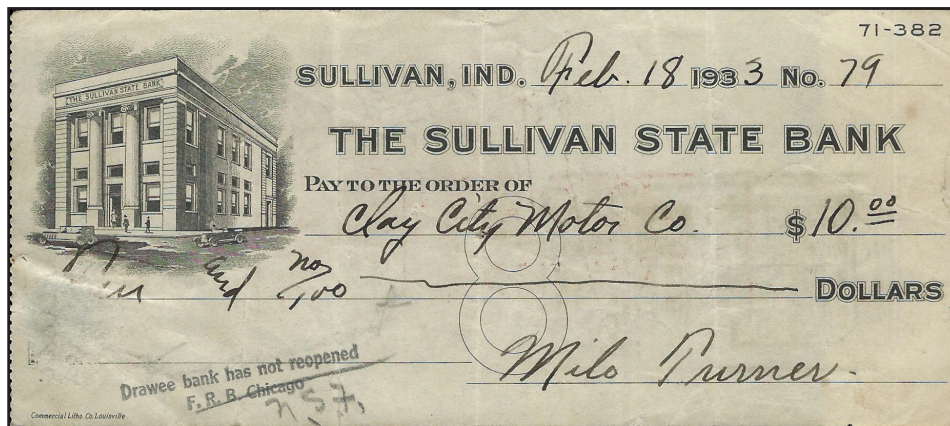 71-382
THE SULLIVAN STATE BANK
SULLIVAN, IND. Feb. 18 1933 No. 79
THE SULLIVAN STATE BANK
PAY TO THE ORDER OF
Clay City Motor Co. $10.00
Ten and no/100 DOLLARS
8
Milo Turner.
Drawee bank has not reopened
F. R. B. Chicago
NSF.
Commercial Litho. Co. Louisville